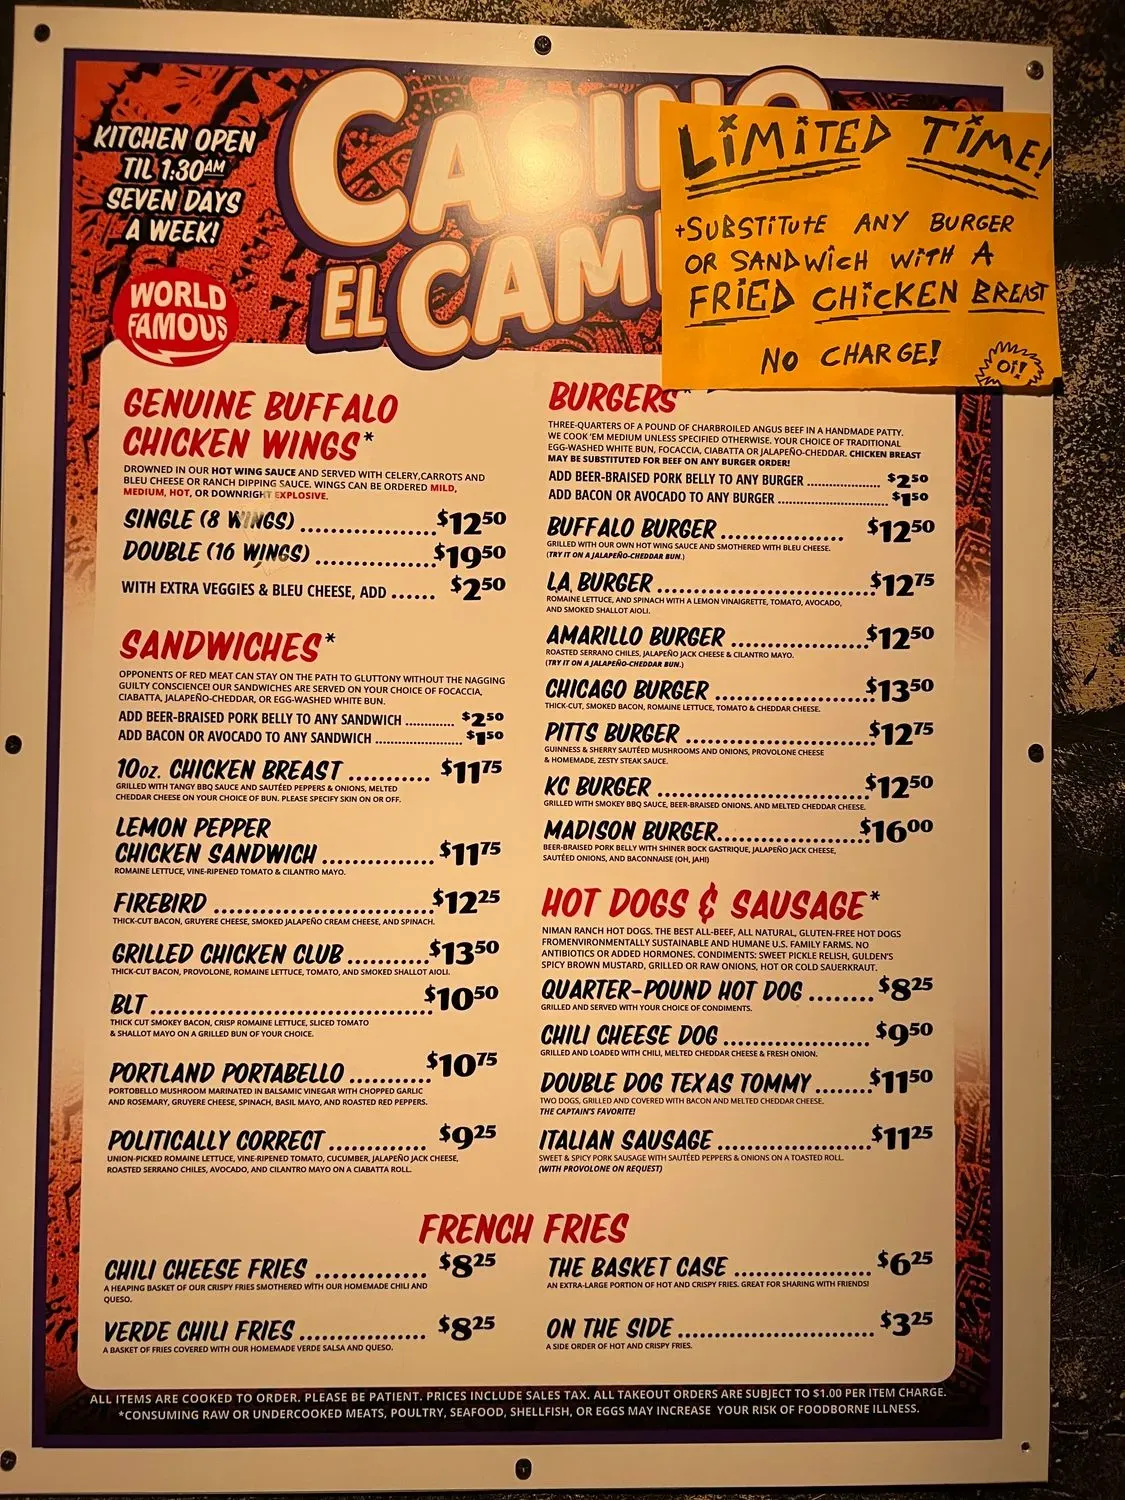 KITCHEN OPEN
TIL 1:30AM
SEVEN DAYS
A WEEK!
WORLD
FAMOUS
CASINO
EL CAM
LIMITED TIME!
+SUBSTITUTE ANY BURGER
OR SANDWICH WITH A
FRIED CHICKEN BREAST
NO CHARGE!
Oi!
GENUINE BUFFALO
CHICKEN WINGS*
DROWNED IN OUR HOT WING SAUCE AND SERVED WITH CELERY,CARROTS AND
BLEU CHEESE OR RANCH DIPPING SAUCE. WINGS CAN BE ORDERED MILD,
MEDIUM, HOT, OR DOWNRIGHT EXPLOSIVE.
SINGLE (8 WINGS) .................... $12.50
DOUBLE (16 WINGS) .................. $19.50
WITH EXTRA VEGGIES & BLEU CHEESE, ADD ...... $2.50
SANDWICHES*
OPPONENTS OF RED MEAT CAN STAY ON THE PATH TO GLUTTONY WITHOUT THE NAGGING
GUILTY CONSCIENCE! OUR SANDWICHES ARE SERVED ON YOUR CHOICE OF FOCACCIA,
CIABATTA, JALAPEÑO-CHEDDAR, OR EGG-WASHED WHITE BUN.
ADD BEER-BRAISED PORK BELLY TO ANY SANDWICH ............. $2.50
ADD BACON OR AVOCADO TO ANY SANDWICH ....................... $1.50
10oz. CHICKEN BREAST ........... $11.75
GRILLED WITH TANGY BBQ SAUCE AND SAUTÉED PEPPERS & ONIONS, MELTED
CHEDDAR CHEESE ON YOUR CHOICE OF BUN. PLEASE SPECIFY SKIN ON OR OFF.
LEMON PEPPER
CHICKEN SANDWICH ............... $11.75
ROMAINE LETTUCE, VINE-RIPENED TOMATO & CILANTRO MAYO.
FIREBIRD ............................. $12.25
THICK-CUT BACON, GRUYERE CHEESE, SMOKED JALAPEÑO CREAM CHEESE, AND SPINACH.
GRILLED CHICKEN CLUB ........... $13.50
THICK-CUT BACON, PROVOLONE, ROMAINE LETTUCE, TOMATO, AND SMOKED SHALLOT AIOLI.
BLT ...................................... $10.50
THICK CUT SMOKEY BACON, CRISP ROMAINE LETTUCE, SLICED TOMATO
& SHALLOT MAYO ON A GRILLED BUN OF YOUR CHOICE.
PORTLAND PORTABELLO ........... $10.75
PORTOBELLO MUSHROOM MARINATED IN BALSAMIC VINEGAR WITH CHOPPED GARLIC
AND ROSEMARY, GRUYERE CHEESE, SPINACH, BASIL MAYO, AND ROASTED RED PEPPERS.
POLITICALLY CORRECT ............. $9.25
UNION-PICKED ROMAINE LETTUCE, VINE-RIPENED TOMATO, CUCUMBER, JALAPEÑO JACK CHEESE,
ROASTED SERRANO CHILES, AVOCADO, AND CILANTRO MAYO ON A CIABATTA ROLL.
BURGERS*
THREE-QUARTERS OF A POUND OF CHARBROILED ANGUS BEEF IN A HANDMADE PATTY.
WE COOK 'EM MEDIUM UNLESS SPECIFIED OTHERWISE. YOUR CHOICE OF TRADITIONAL
EGG-WASHED WHITE BUN, FOCACCIA, CIABATTA OR JALAPEÑO-CHEDDAR. CHICKEN BREAST
MAY BE SUBSTITUTED FOR BEEF ON ANY BURGER ORDER!
ADD BEER-BRAISED PORK BELLY TO ANY BURGER ................... $2.50
ADD BACON OR AVOCADO TO ANY BURGER ............................ $1.50
BUFFALO BURGER .................. $12.50
GRILLED WITH OUR OWN HOT WING SAUCE AND SMOTHERED WITH BLEU CHEESE.
(TRY IT ON A JALAPEÑO-CHEDDAR BUN.)
L.A. BURGER ............................. $12.75
ROMAINE LETTUCE, AND SPINACH WITH A LEMON VINAIGRETTE, TOMATO, AVOCADO,
AND SMOKED SHALLOT AIOLI.
AMARILLO BURGER .................. $12.50
ROASTED SERRANO CHILES, JALAPEÑO JACK CHEESE & CILANTRO MAYO.
(TRY IT ON A JALAPEÑO-CHEDDAR BUN.)
CHICAGO BURGER .................... $13.50
THICK-CUT, SMOKED BACON, ROMAINE LETTUCE, TOMATO & CHEDDAR CHEESE.
PITTS BURGER ......................... $12.75
GUINNESS & SHERRY SAUTÉED MUSHROOMS AND ONIONS, PROVOLONE CHEESE
& HOMEMADE, ZESTY STEAK SAUCE.
KC BURGER ............................. $12.50
GRILLED WITH SMOKEY BBQ SAUCE, BEER-BRAISED ONIONS. AND MELTED CHEDDAR CHEESE.
MADISON BURGER.................... $16.00
BEER-BRAISED PORK BELLY WITH SHINER BOCK GASTRIQUE, JALAPEÑO JACK CHEESE,
SAUTÉED ONIONS, AND BACONNAISE (OH, JAH!)
HOT DOGS & SAUSAGE*
NIMAN RANCH HOT DOGS. THE BEST ALL-BEEF, ALL NATURAL, GLUTEN-FREE HOT DOGS
FROMENVIRONMENTALLY SUSTAINABLE AND HUMANE U.S. FAMILY FARMS. NO
ANTIBIOTICS OR ADDED HORMONES. CONDIMENTS: SWEET PICKLE RELISH, GULDEN'S
SPICY BROWN MUSTARD, GRILLED OR RAW ONIONS, HOT OR COLD SAUERKRAUT.
QUARTER-POUND HOT DOG ........ $8.25
GRILLED AND SERVED WITH YOUR CHOICE OF CONDIMENTS.
CHILI CHEESE DOG ................... $9.50
GRILLED AND LOADED WITH CHILI, MELTED CHEDDAR CHEESE & FRESH ONION.
DOUBLE DOG TEXAS TOMMY ....... $11.50
TWO DOGS, GRILLED AND COVERED WITH BACON AND MELTED CHEDDAR CHEESE.
THE CAPTAIN'S FAVORITE!
ITALIAN SAUSAGE .................... $11.25
SWEET & SPICY PORK SAUSAGE WITH SAUTÉED PEPPERS & ONIONS ON A TOASTED ROLL.
(WITH PROVOLONE ON REQUEST)
FRENCH FRIES
CHILI CHEESE FRIES ............... $8.25
A HEAPING BASKET OF OUR CRISPY FRIES SMOTHERED WITH OUR HOMEMADE CHILI AND
QUESO.
VERDE CHILI FRIES ................. $8.25
A BASKET OF FRIES COVERED WITH OUR HOMEMADE VERDE SALSA AND QUESO.
THE BASKET CASE .................. $6.25
AN EXTRA-LARGE PORTION OF HOT AND CRISPY FRIES. GREAT FOR SHARING WITH FRIENDS!
ON THE SIDE .......................... $3.25
A SIDE ORDER OF HOT AND CRISPY FRIES.
ALL ITEMS ARE COOKED TO ORDER. PLEASE BE PATIENT. PRICES INCLUDE SALES TAX. ALL TAKEOUT ORDERS ARE SUBJECT TO $1.00 PER ITEM CHARGE.
*CONSUMING RAW OR UNDERCOOKED MEATS, POULTRY, SEAFOOD, SHELLFISH, OR EGGS MAY INCREASE YOUR RISK OF FOODBORNE ILLNESS.